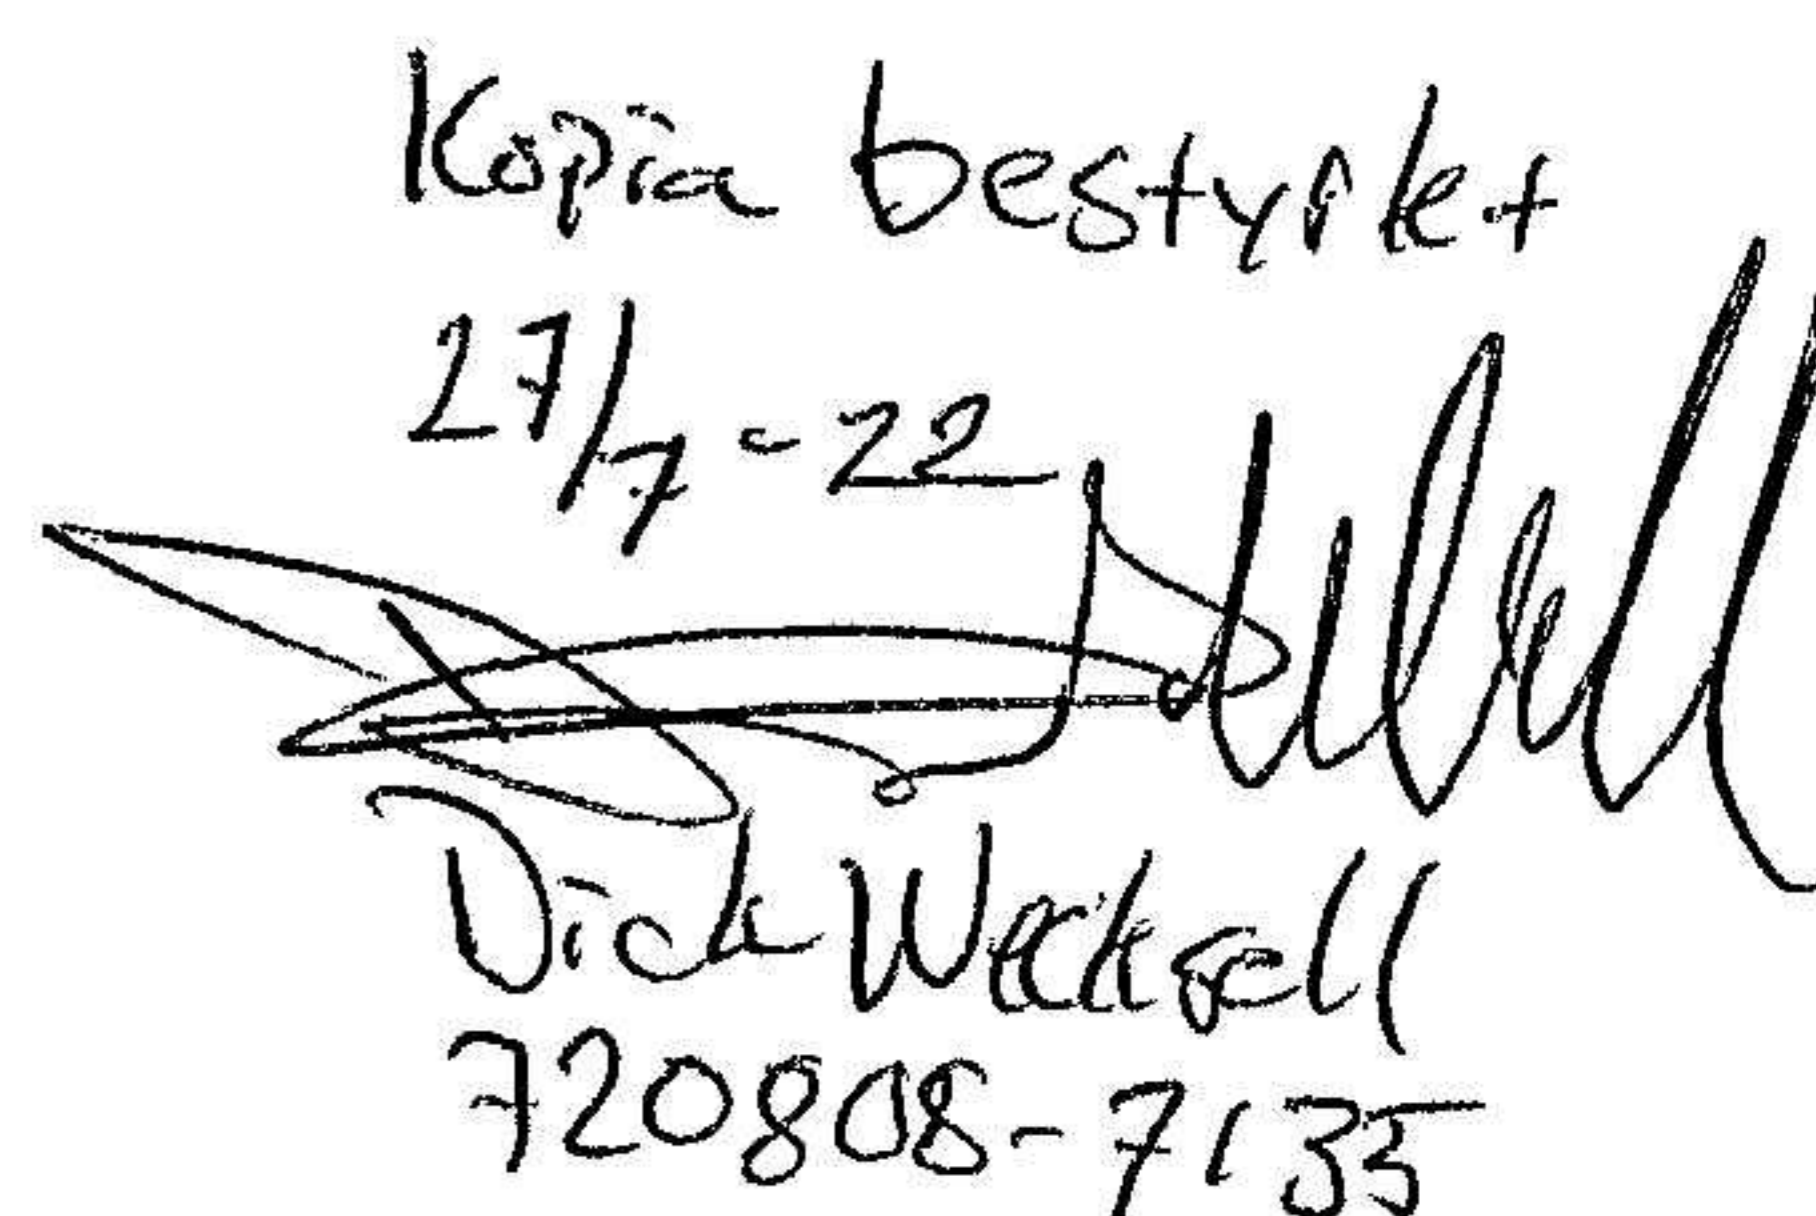 Kopia bestyrket
27/7-22
Dick Wecksell
720808-7135